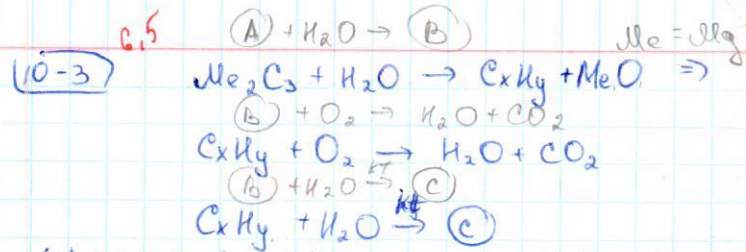 6,5 (A) + H₂O → (B) Me = Mg
10-3 Me₂C₃ + H₂O → CxHy + MeO ⇒
(B) + O₂ → H₂O + CO₂
CxHy + O₂ → H₂O + CO₂
(B) + H₂O →kt (C)
CxHy + H₂O →kt (C)